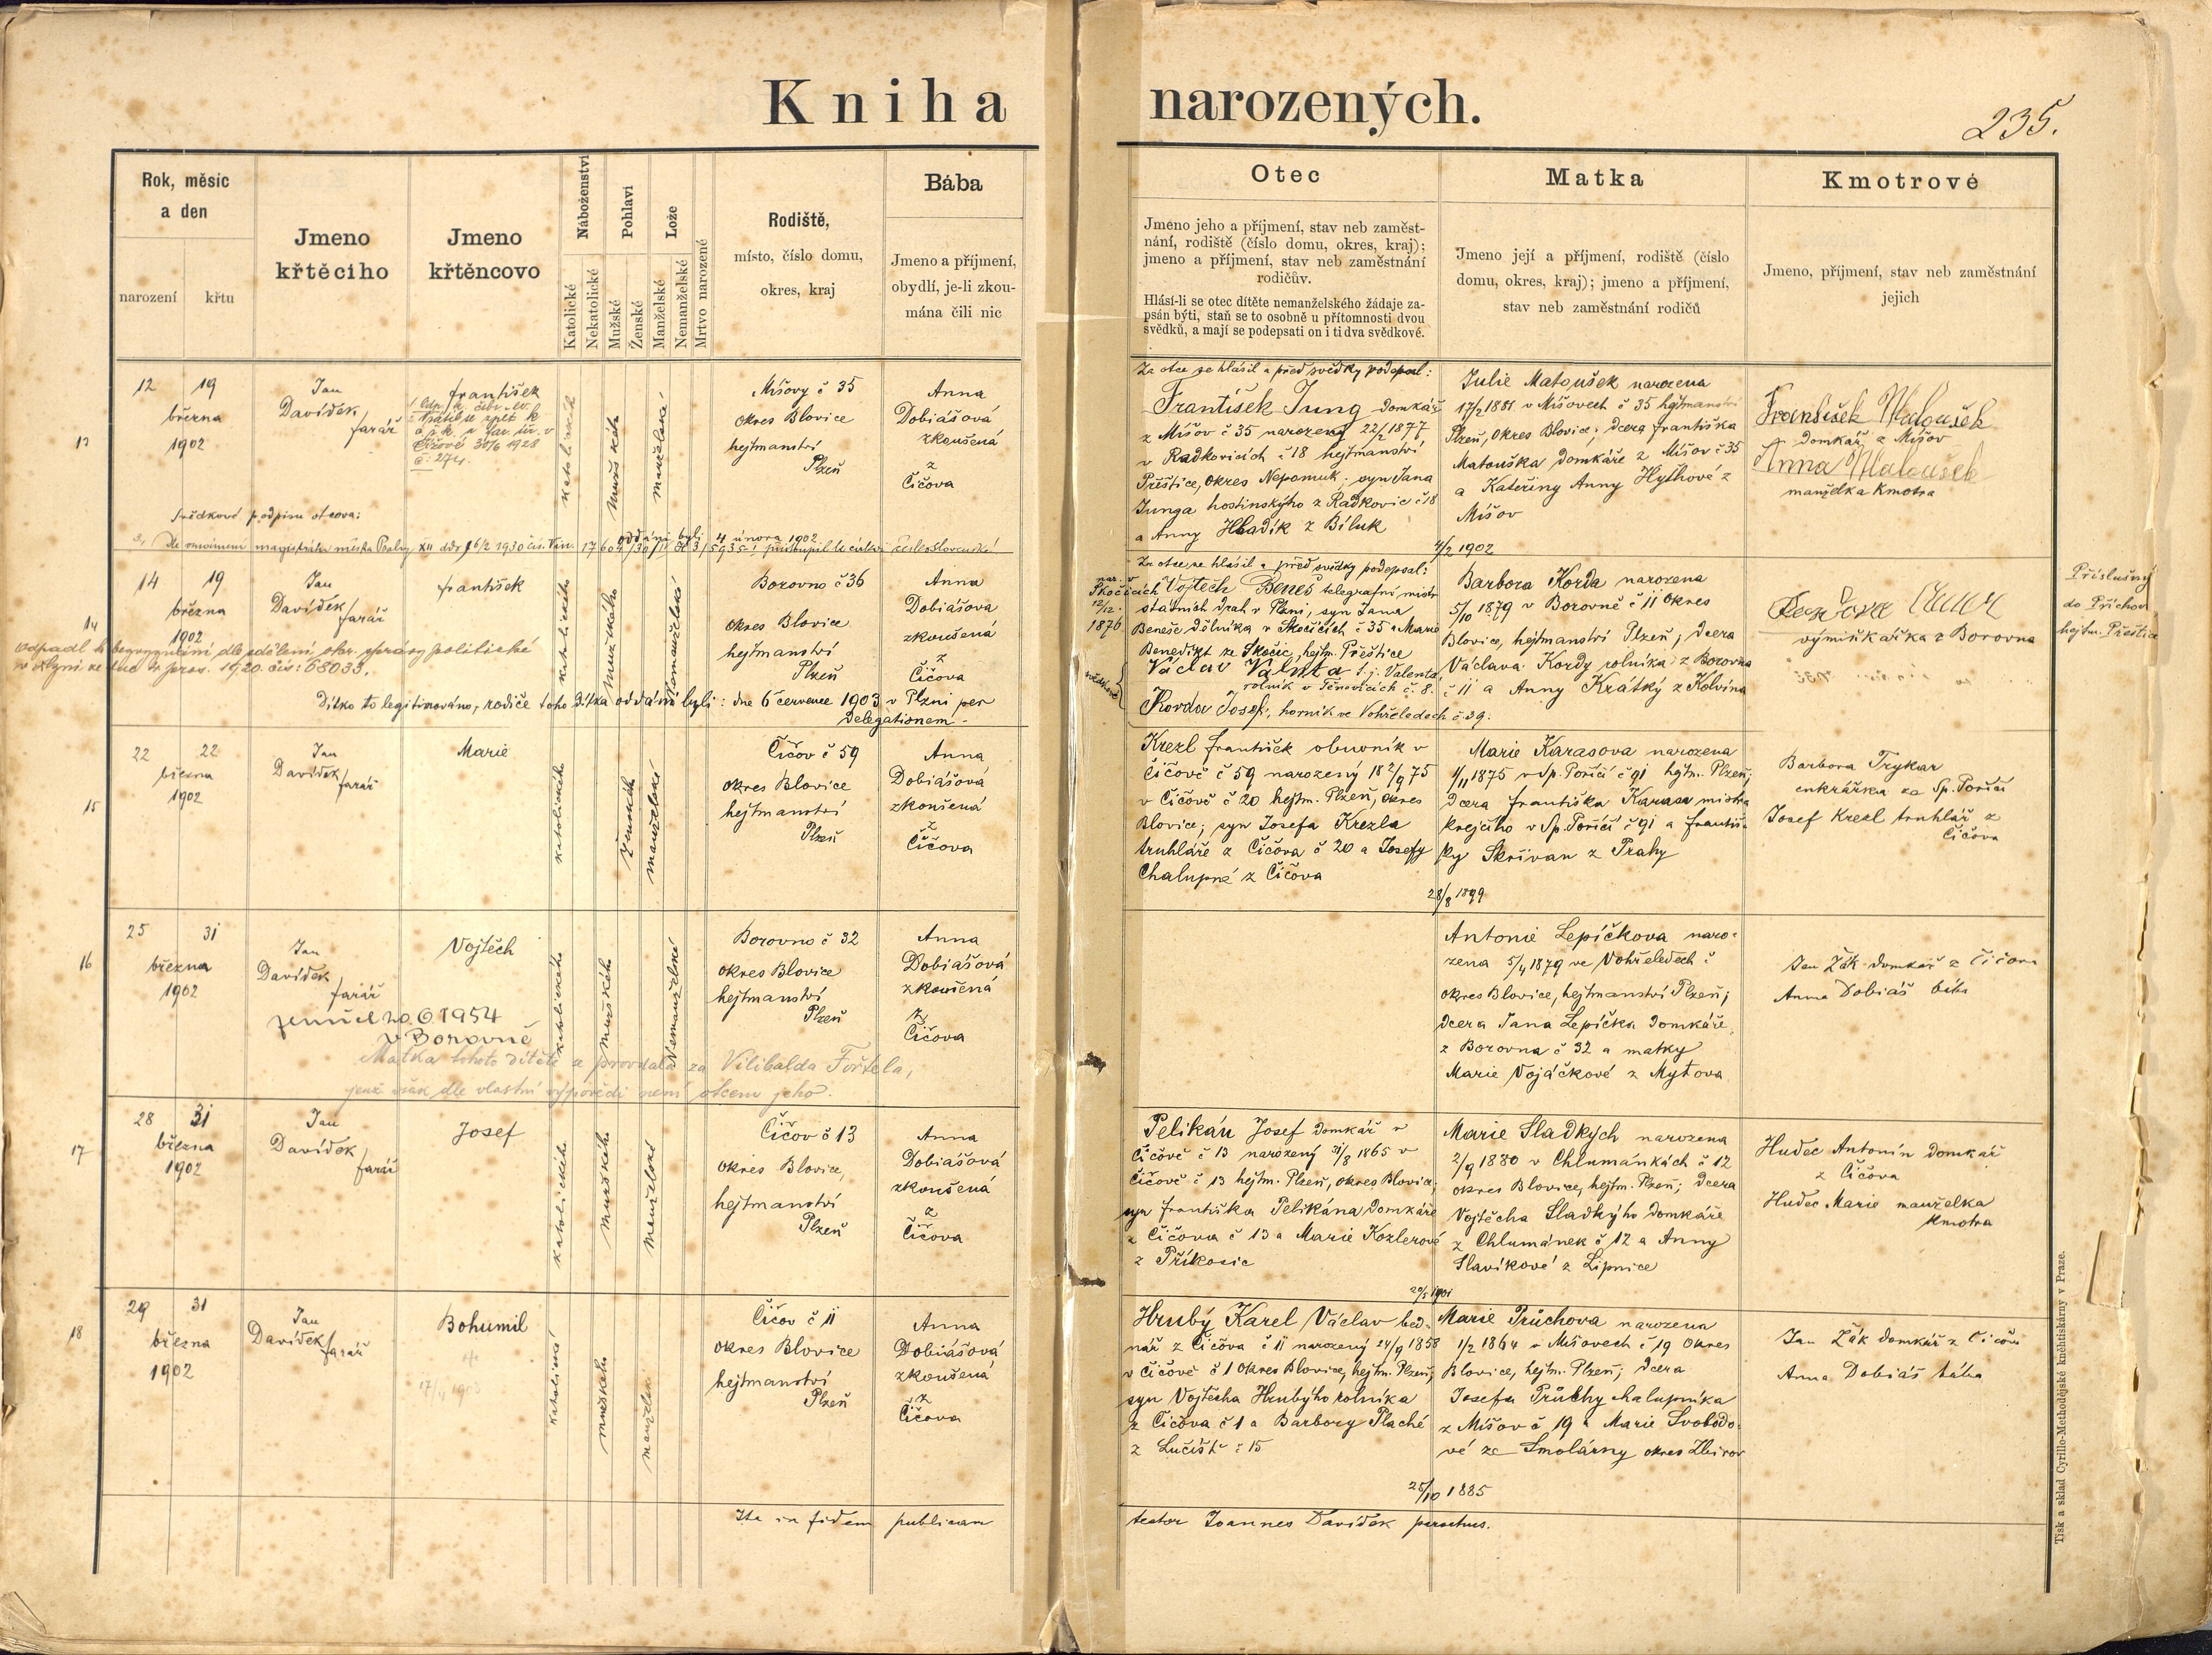 Kniha narozených.
235.
Rok, měsíc
a den
narození
křtu
Jmeno
křtěcího
Jmeno
křtěncovo
Náboženství
Katolické
Nekatolické
Pohlaví
Mužské
Ženské
Lože
Manželské
Nemanželské
Mrtvo narozené
Rodiště,
místo, číslo domu,
okres, kraj
Bába
Jmeno a příjmení,
obydlí, je-li zkou-
mána čili nic
Otec
Jmeno jeho a příjmení, stav neb zaměst-
nání, rodiště (číslo domu, okres, kraj);
jmeno a příjmení, stav neb zaměstnání
rodičův.
Hlásí-li se otec dítěte nemanželského žádaje za-
psán býti, staň se to osobně u přítomnosti dvou
svědků, a mají se podepsati on i ti dva svědkové.
Matka
Jmeno její a příjmení, rodiště (číslo
domu, okres, kraj); jmeno a příjmení,
stav neb zaměstnání rodičů
Kmotrové
Jmeno, příjmení, stav neb zaměstnání
jejich
13
12 19
března
1902
Jan
Davídek
farář
František
30/6 1928
katolické
mužského
manželské
Míšovy č 35
okres Blovice
hejtmanství
Plzeň
Anna
Dobiášová
zkoušená
z
Čičova
Za otce se hlásil a před svědky podepsal:
František Jung domkář
z Míšov č 35 narozený 22/2 1877
v Radkovicích č 18 hejtmanství
Přeštice, okres Nepomuk; syn Jana
Junga hostinského z Radkovic č 18
a Anny Hladík z Biluk
Julie Matoušek narozena
17/2 1881 v Míšovech č 35 hejtmanství
Plzeň, Okres Blovice; dcera Františka
Matouška domkáře z Míšov č 35
a Kateřiny Anny Hythové z
Míšov
František Matoušek
domkář z Míšov
Anna Matoušek
manželka kmotra
Svědkové podpisu otcova:
oddáni byli 4 února 1902
4/2 1902
14
14 19
března
1902
Jan
Davídek
farář
František
katolického
mužského
Nemanželské
Borovno č 36
okres Blovice
hejtmanství
Plzeň
Anna
Dobiášova
zkoušená
z
Čičova
Za otce se hlásil a před svědky podepsal:
nar. v
Skočicích
12/12.
1876
Vojtěch Beneš telegrafní mistr
státních drah v Plzni, syn Jana
Beneše dělníka v Skočicích č 35 a Marie
Benedikt ze Skočic, hejtm. Přeštice
Václav Valnta t.j. Valenta,
rolník v Těnovicích č. 8.
Korda Josef, horník ve Vohřeledech č 39.
svědkové
Barbora Korda narozena
5/10 1879 v Borovně č 11 Okres
Blovice, hejtmanství Plzeň; dcera
Václava Kordy rolníka z Borovna
č 11 a Anny Krátký z Kolvína
výminkářka z Borovna
Příslušný
do Příchov
hejtm. Přeštice
odpadl k bezvyznání dle sdělení okr. správy politické
1920. čís: 68033.
Dítko to legitimováno, rodiče toho dítka oddáni byli: dne 6 července 1903 v Plzni per
Delegationem.
15
22 22
března
1902
Jan
Davídek
farář
Marie
katolického
ženského
manželské
Čičov č 59
okres Blovice
hejtmanství
Plzeň
Anna
Dobiášová
zkoušená
z
Čičova
Krezl František obuvník v
Čičově č 59 narozený 18 2/9 75
v Čičově č 20 hejtm. Plzeň, okres
Blovice; syn Josefa Krezla
truhláře z Čičova č 20 a Josefy
Chalupné z Čičova
Marie Karasova narozena
1/11 1875 v Sp. Poříčí č 91 hejtm. Plzeň;
dcera Františka Karasa mistra
krejčího v Sp. Poříčí č 91 a Františ-
ky Skřivan z Prahy
28/8 1899
Barbora Trykar
cukrářka ze Sp. Poříčí
Josef Krezl truhlář z
Čičova
16
25 31
března
1902
Jan
Davídek
farář
Vojtěch
katolického
mužského
Nemanželské
Borovno č 32
okres Blovice
hejtmanství
Plzeň
Anna
Dobiášová
zkoušená
z
Čičova
zemřel 20.6 1954
v Borovně
Matka tohoto dítěte se provdala za Vilibalda Fořtela,
jenž však dle vlastní výpovědi není otcem jeho.
Antonie Lepíčkova naro-
zena 5/4 1879 ve Vohřeledech č
okres Blovice, hejtmanství Plzeň;
dcera Jana Lepíčka domkáře
z Borovna č 32 a matky
Marie Vojáčkové z Mýtova
Jan Žák domkář z Čičova
Anna Dobiáš bába
17
28 31
března
1902
Jan
Davídek
farář
Josef
katolického
mužského
manželské
Čičov č 13
okres Blovice,
hejtmanství
Plzeň
Anna
Dobiášová
zkoušená
z
Čičova
Pelikán Josef domkář v
Čičově č 13 narozený 31/8 1865 v
Čičově č 13 hejtm. Plzeň, okres Blovice;
syn Františka Pelikána domkáře
z Čičova č 13 a Marie Kozlerové
z Příkosic
Marie Sladkých narozena
2/9 1880 v Chlumánkách č 12
okres Blovice, hejtm. Plzeň; dcera
Vojtěcha Sladkýho domkáře
z Chlumánek č 12 a Anny
Slavíkové z Lipnice
20/5 1901
Hudec Antonín domkář
z Čičova
Hudec Marie manželka
kmotra
18
29 31
března
1902
Jan
Davídek
farář
Bohumil
17/4 1903
katolické
mužského
manželské
Čičov č 11
okres Blovice
hejtmanství
Plzeň
Anna
Dobiášová
zkoušená
z
Čičova
Hrubý Karel Václav bed-
nář z Čičova č 11 narozený 24/9 1858
v Čičově č 1 Okres Blovice, hejtm. Plzeň;
syn Vojtěcha Hrubýho rolníka
z Čičova č 1 a Barbory Plaché
z Lučiště č 15
Marie Průchova narozena
1/2 1864 v Míšovech č 19 Okres
Blovice, hejtm. Plzeň; dcera
Josefa Průchy chalupníka
z Míšov č 19 a Marie Svobodo-
vé ze Smolárny okres Zbirov
25/10 1885
Jan Žák domkář z Čičova
Anna Dobiáš bába
Ita in fidem publicam
testor Joannes Davídek parochus.
Tisk a sklad Cyrillo-Methodějské kněhtiskárny v Praze.